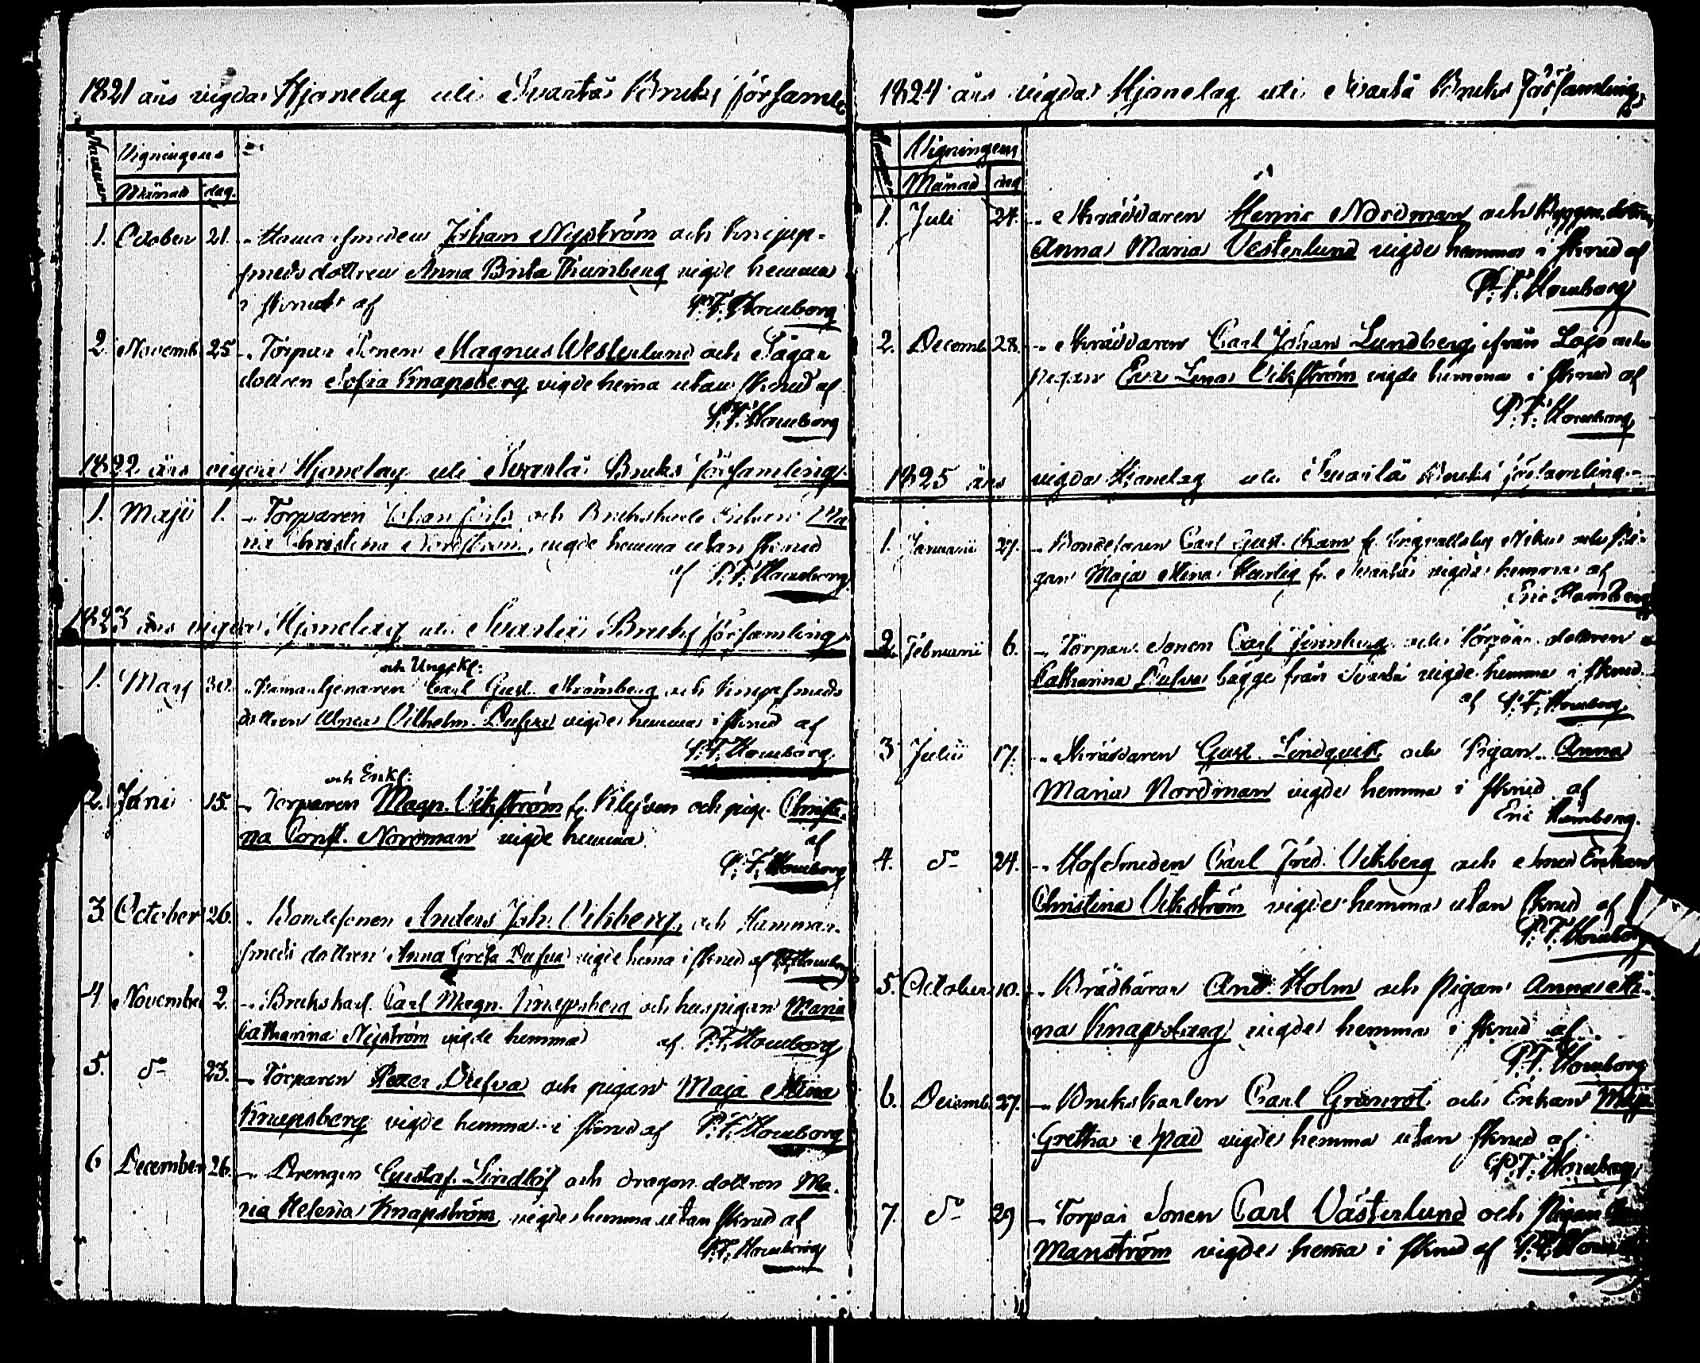 1821 års vigda Hjonelag uti Svartå Bruks församl:
Nummer Vigningens
Månad dag.
1. October 21. Hamarsmeden Johan Nyström och Knipp-
smeds dottren Anna Brita Thunberg vigde hemma
i skrud af P.F. Homborg
2. Novemb. 25. Torpar Sonen Magnus Westerlund och Sågar
dottren Sofia Knapsberg vigde hemma utan skrud af
P.F. Homborg
1822 års vigda Hjonelag uti Svartå Bruks församling.
1. Maji 1. Torparen Johan och Bruks Ma-
ria Christina Nordström, vigde hemma utan skrud
af P.F. Homborg
1823 års vigda Hjonelag uti Svartå Bruks församling.
och Ungkl:
1. Mars 30. Carl Gust. Strömberg och Knipsmeds
dottren Ulrica Vilhelm. Dufva vigde hemma i skrud af
P.F. Homborg.
och Enkl:
2. Juni 15. Torparen Magn. Vikström fr. och pig. Christi-
na Const. Nordman vigde hemma af
P.F. Homborg
3. October 26. Bondesonen Anders Joh. Vikberg, och Hammar-
smeds dottren Anna Greta Dufva vigde hema i skrud af P.F. Homborg
4. November 2. Brukskarl. Carl Magn. Knapsberg och huspigan Maria
Catharina Nyström vigde hemma af P.F. Homborg
5. do 23. Torparen Peter Dufva och pigan Maja Stina
Knapsberg vigde hemma i skrud af P.F. Homborg
6. December 26. Drengen Gustaf Lindlöf och dragon dottren Ma-
ria Helena Knapström vigde hemma utan skrud af
P.F. Homborg
1824 års vigda Hjonelag uti Svartå Bruks Församling.
Nummer Vigningens
Månad dag
1. Juli 24. Skräddaren Henric Nordman och Bygge. dottren
Anna Maria Vesterlund vigde hemma i skrud af
P.F. Homborg
2. Decemb. 28. Skräddaren Carl Johan Lundberg ifrån Lojo och
pigan Eva Lena Vikström vigde hemma i skrud af
P.F. Homborg
1825 års vigda Hjonelag uti Svartå Bruks församling.
1. Januarii 27. Bondesonen Carl Gust. fr. och Pi-
gan Maja Stina Hurtig fr. Svartå vigde hemma af
Eric Homborg
2. Februarii 6. Torpar Sonen Carl och Torpare dottren
Catharina Dufva bägge från Svartå vigde hemma i skrud.
af P.F. Homborg
3. Julii 17. Skräddaren Gust. Lindqvist och Pigan Anna
Maria Nordman vigde hemma i skrud af
Eric Homborg.
4. do 24. Hofsmeden Carl Fred. Vikberg och Smed Enkan
Christina Vikström vigde hemma utan skrud af
P.F. Homborg
5. October 10. Brädbäraren And. Holm och Pigan Anna Sti-
na Knapsberg vigde hemma i skrud af
P.F. Homborg
6. Decemb. 27. Brukskarlen Carl Granrot och Enkan Maja
Gretha Spad vigde hemma utan skrud af
P.F. Homborg
7. do 29 Torpar Sonen Carl Västerlund och Pigan
Manström vigde hema i skrud af P.F. Homborg